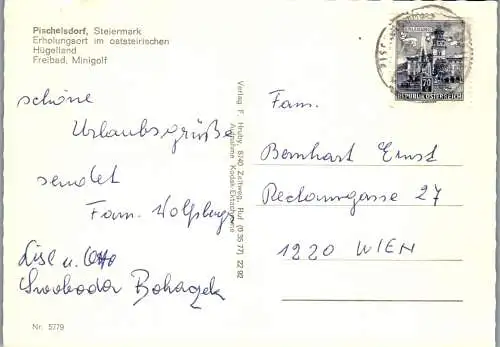 Pischelsdorf, Steiermark
Erholungsort im oststeirischen
Hügelland
Freibad, Minigolf
schöne
Urlaubsgrüße
sendet
Fam.
Lisl u. Otto
Swoboda
Nr. 5779
Verlag F. Hruby, 8740 Zeltweg, Ruf (0 35 77) 22 92
Aufnahme Kodak-Ektachrome
70
REPUBLIK ÖSTERREICH
Fam.
Bernhart Ernst
27
1220 WIEN